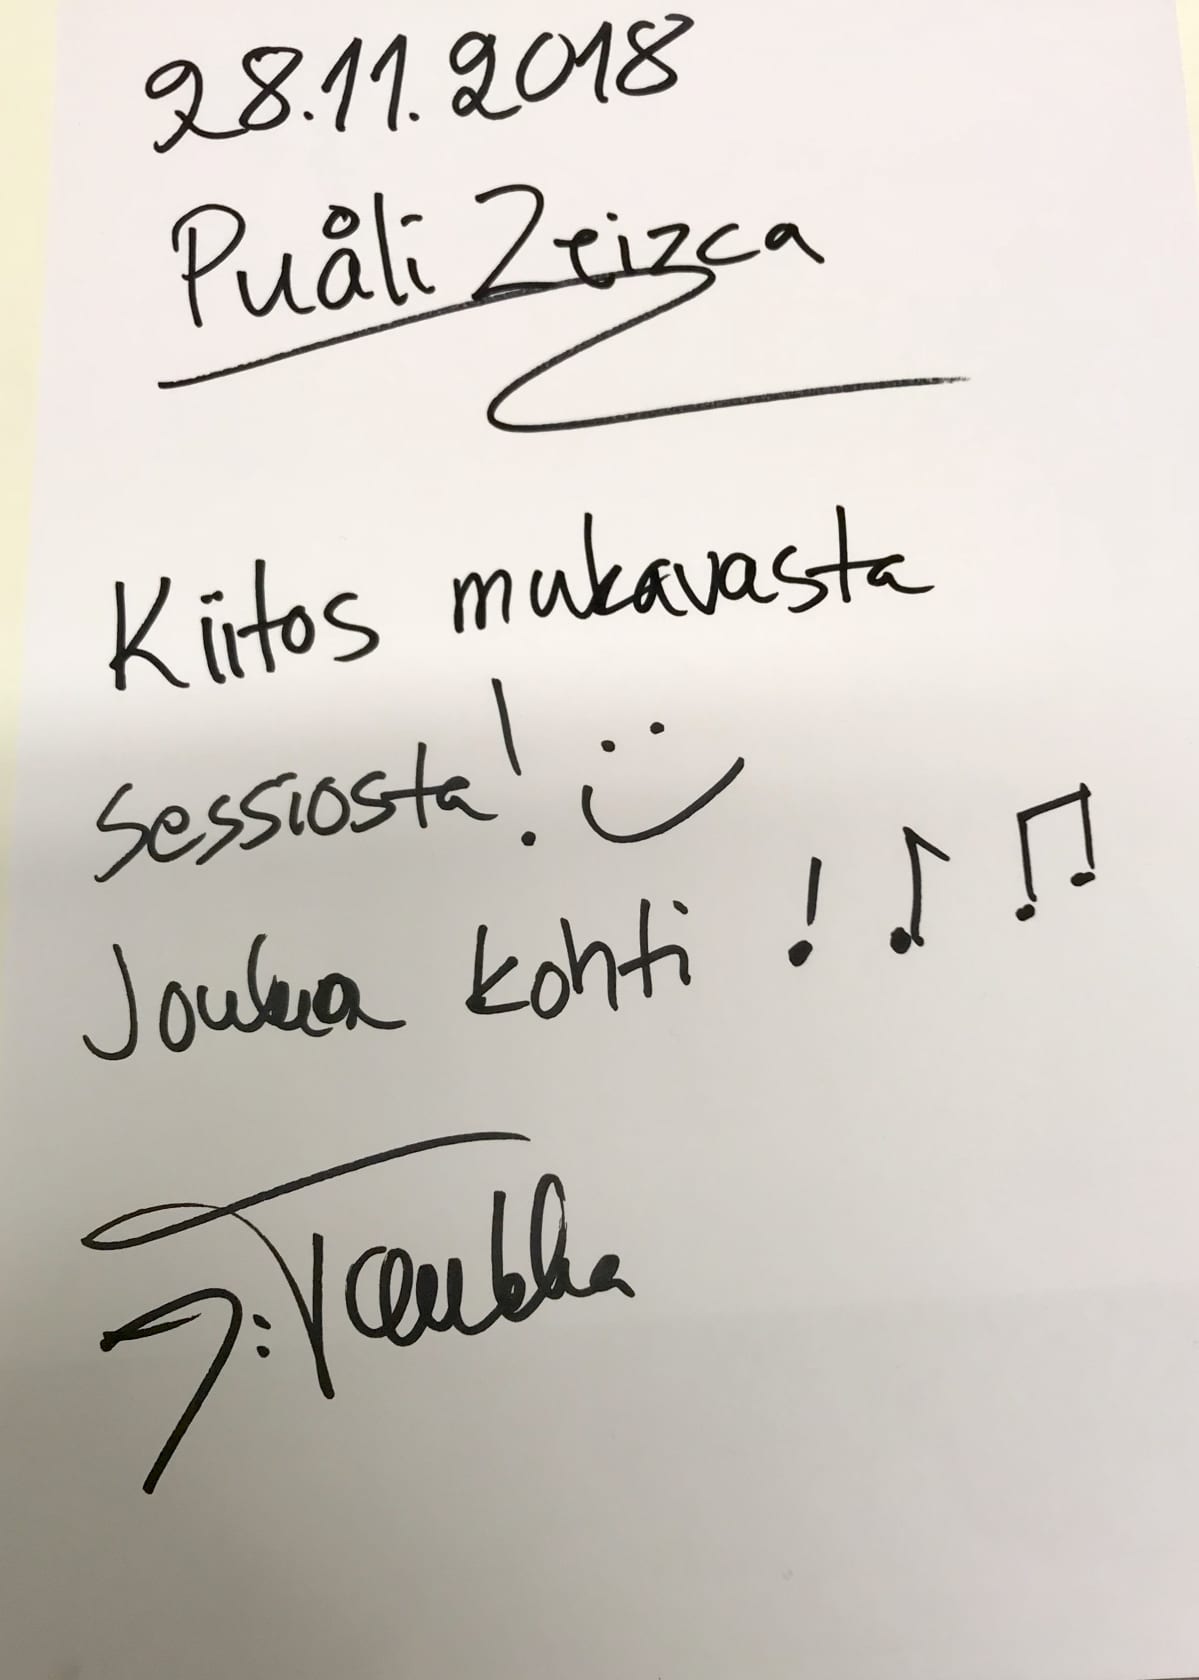 28.11.2018
Puåli Zeizca
Kiitos mukavasta
sessiosta! :)
Joulua kohti !